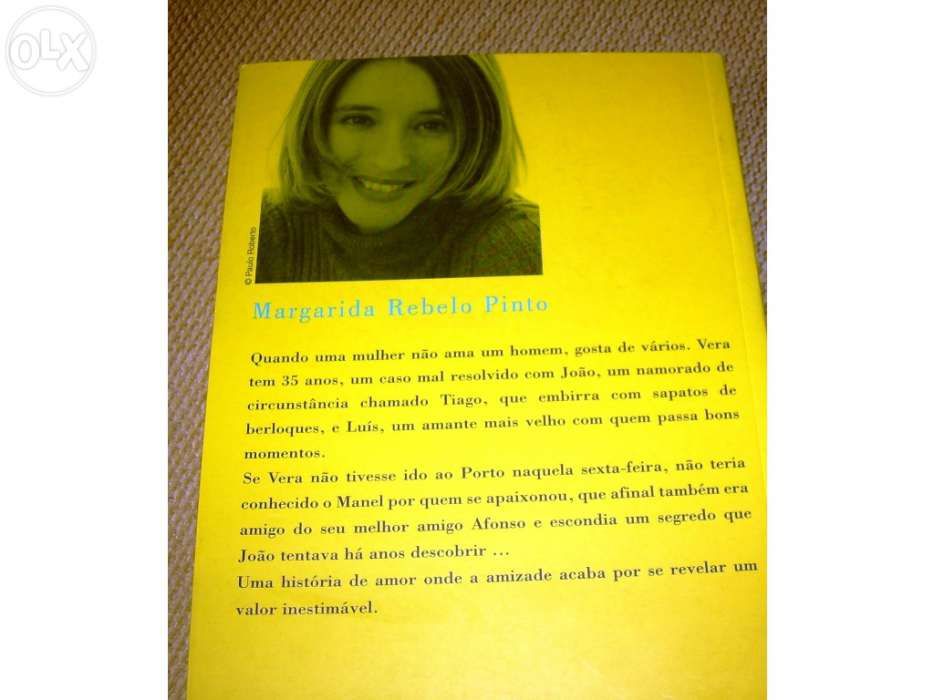 OLX
© Paulo Roberto
Margarida Rebelo Pinto
Quando uma mulher não ama um homem, gosta de vários. Vera
tem 35 anos, um caso mal resolvido com João, um namorado de
circunstância chamado Tiago, que embirra com sapatos de
berloques, e Luís, um amante mais velho com quem passa bons
momentos.
Se Vera não tivesse ido ao Porto naquela sexta-feira, não teria
conhecido o Manel por quem se apaixonou, que afinal também era
amigo do seu melhor amigo Afonso e escondia um segredo que
João tentava há anos descobrir ...
Uma história de amor onde a amizade acaba por se revelar um
valor inestimável.